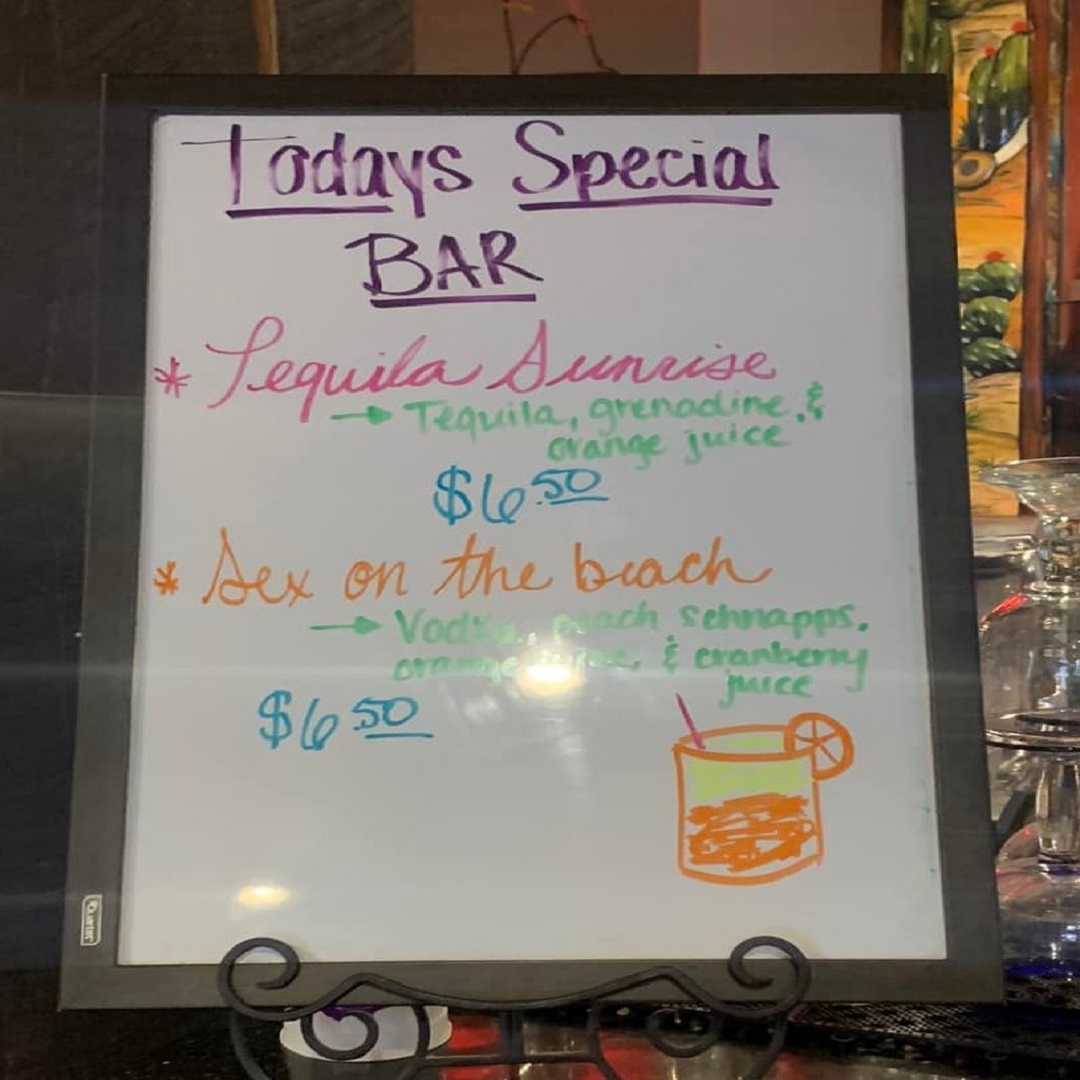 Todays Special
BAR
* Tequila Sunrise
→ Tequila, grenadine, &
orange juice
$6.50
* Sex on the beach
→ Vodka, peach schnapps,
orange juice, & cranberry
juice
$6.50
Quartet